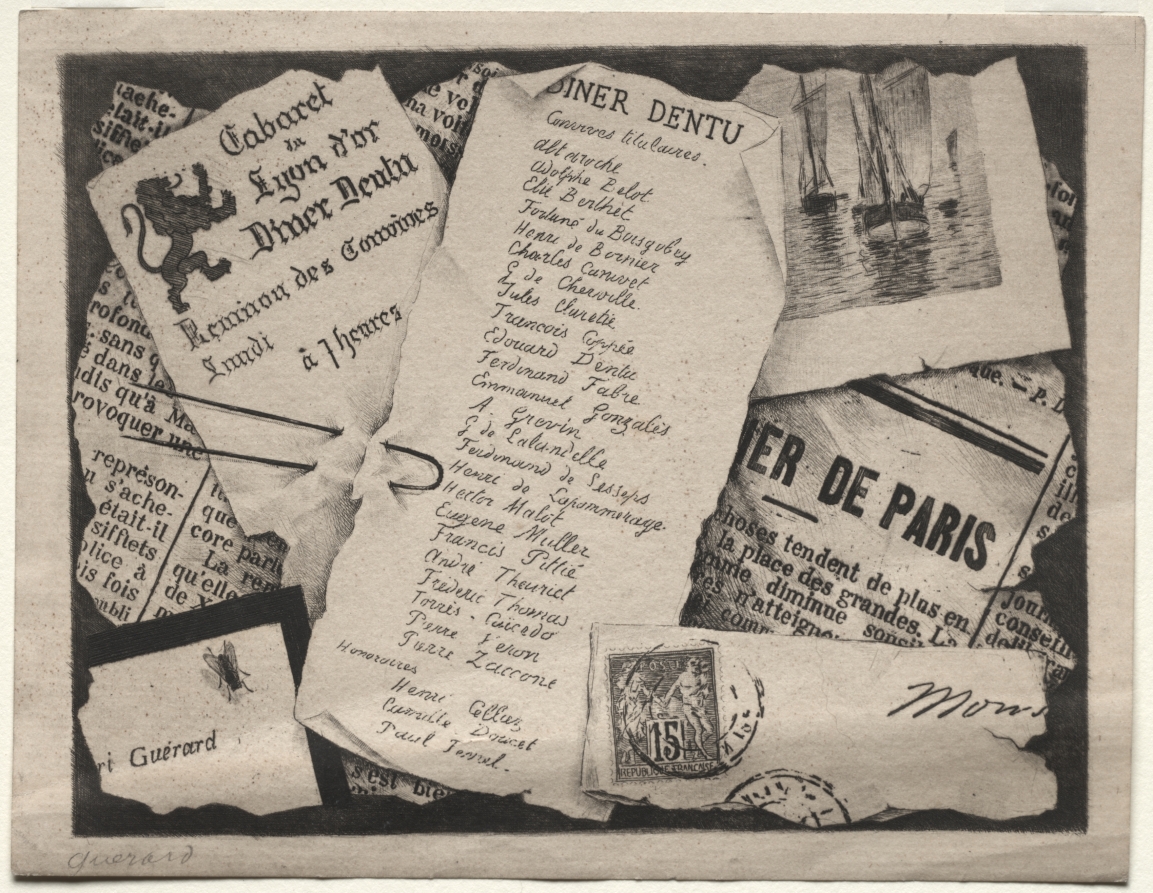 Cabaret
du
Lyon d'or
Diner Dentu
Reunion des Convives
Lundi à 7 heures
DINER DENTU
Convives titulaires.
Altaroche
Adolphe Belot
Elie Berthet
Fortuné du Boisgobey
Henri de Bornier
Charles Canivet
G de Cherville
Jules Claretie
Francois Coppée
Edouard Dentu
Ferdinand Fabre
Emmanuel Gonzalès
A. Grevin
G de Lalandelle
Ferdinand de Lesseps
Henri de Lapommeraye
Hector Malot
Eugene Muller
Francis Pittié
André Theuriet
Fréderic Thomas
Torrès-Caicedo
Pierre Zaccone
Honoraires
Camille Doucet
Paul
ache-
était-il
siffle
soi
na voi
mois
rofond
sans q
é dans le
ndis qu'à Ma
rovoquer une
représen-
u s'ache-
était-il
sifflets
plice à
is fois
que en
core parl
La re
qu'elle
de
s'est bie
que. — P. L
IER DE PARIS
choses tendent de plus en
la place des grandes. L
diminue
n'atteign
com
Journ
conseil
POSTE
15
REPUBLIQUE FRANCAISE
Mons
ri Guérard
Guerard